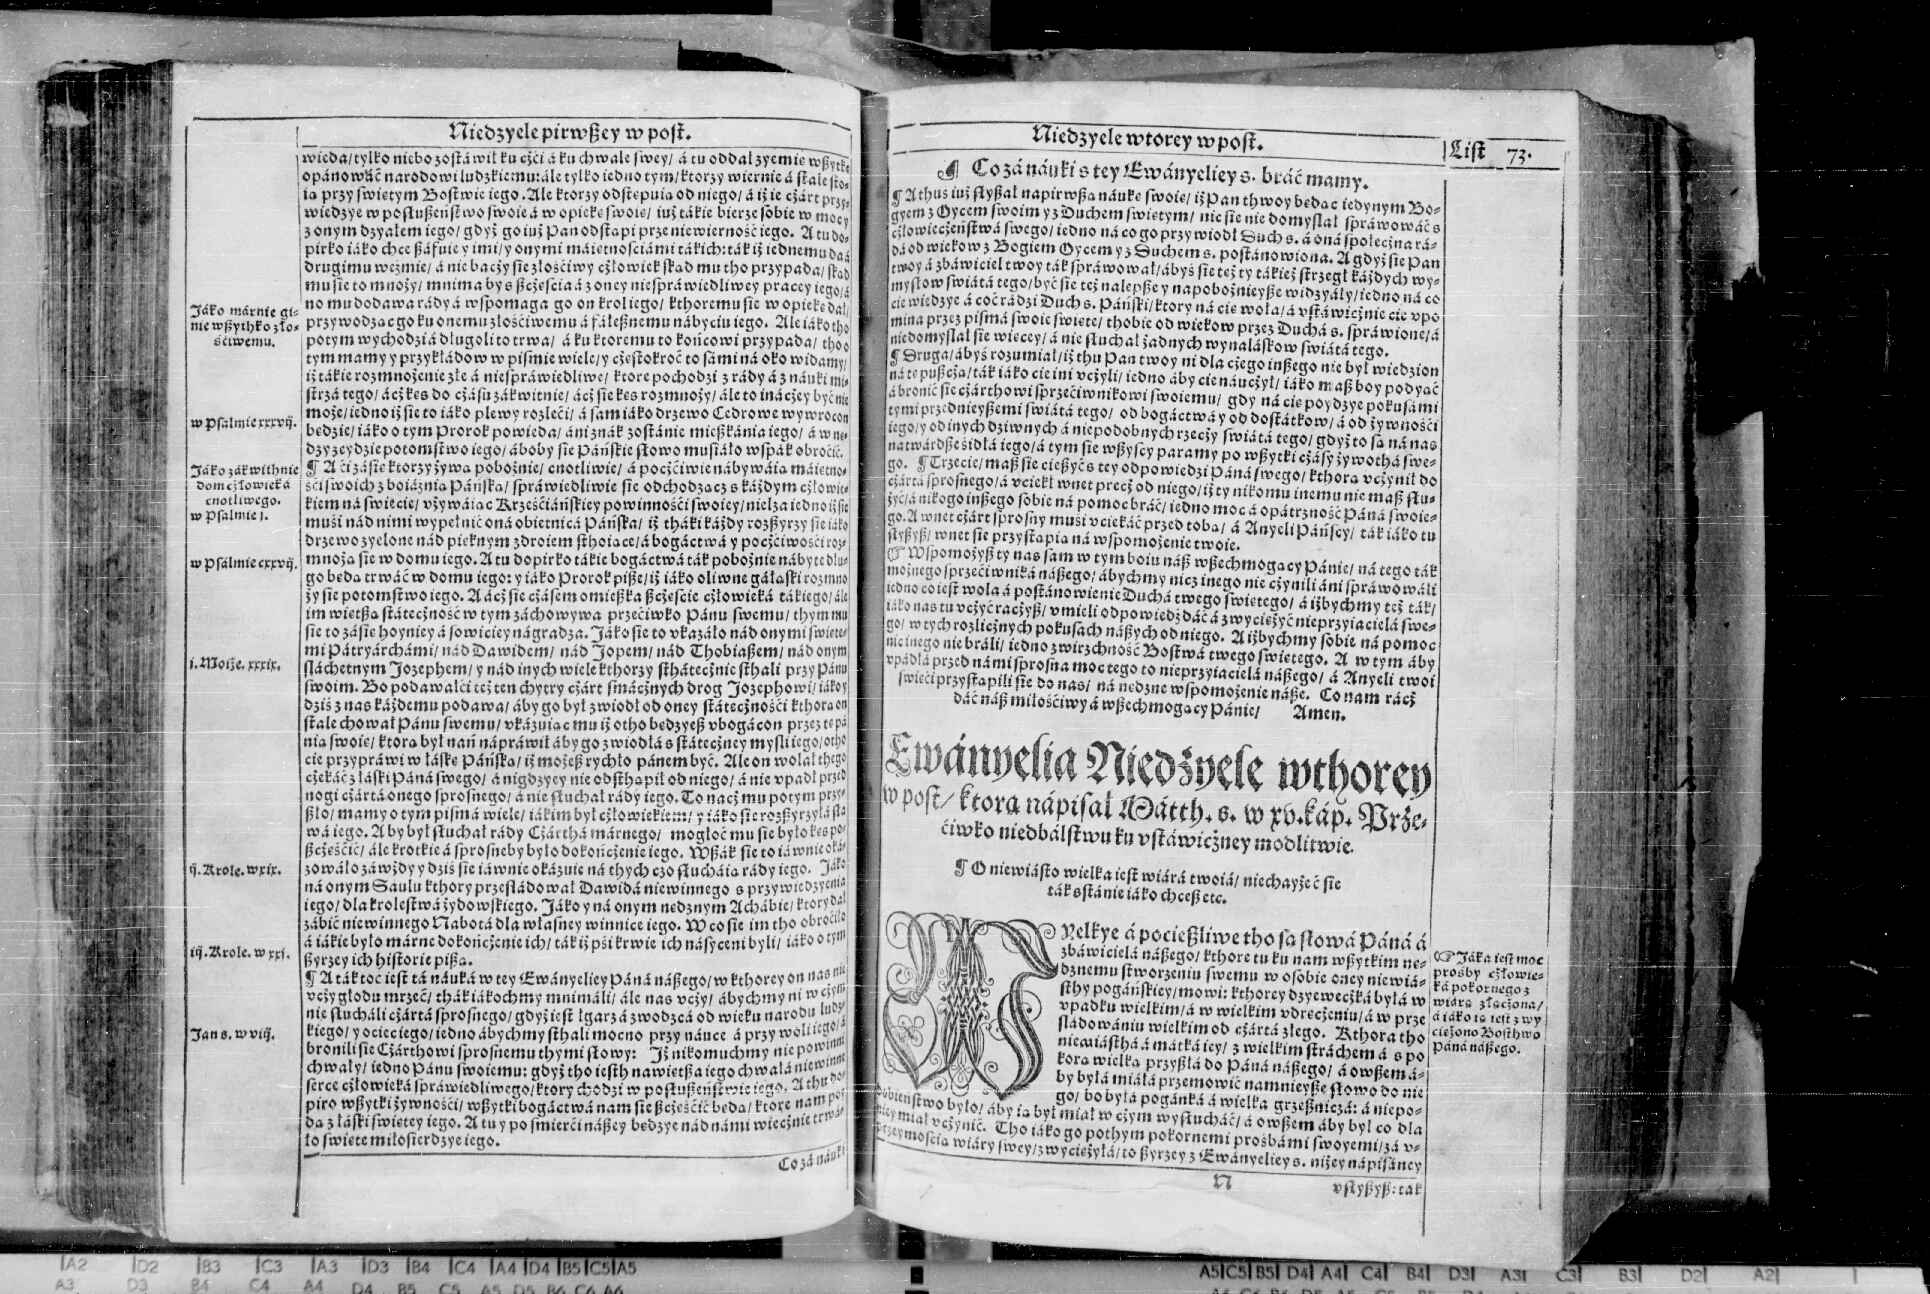 Niedzyele pirwßey w post.
wieda/ tylko niebo zostáwił ku cżći á ku chwale swey/ á tu oddał zyemię wßytkę
opánowáć narodowi ludzkiemu: ále tylko iedno tym/ ktorzy wiernie á stale sto-
ią przy swiętym Bostwie iego. Ale ktorzy odstępuią od niego/ á iż ie cżárt przy-
wiedzye w posłußeństwo swoie á w opiekę swoię/ iuż tákie bierze sobie w mocy
z onym dzyałem iego/ gdyż go iuż Pan odstąpi prze niewierność iego. A tu do-
pirko iáko chce ßáfuie y imi/ y onymi máiętnosciámi tákich: ták iż iednemu da á
drugimu weźmie/ á nie bacży się złosćiwy cżłowiek skąd mu tho przypada/ skąd
mu się to mnoży/ mnima by s ßcżęścia á z oney niespráwiedliwey pracey iego/ á
no mu dodawa rády á wspomaga go on krol iego/ kthoremu się w opiekę dał/
przywodząc go ku onemu złośćiwemu á fáłeßnemu nábyciu iego. Ale iáko tho
potym wychodzi á długoli to trwa/ á ku ktoremu to końcowi przypada/ tho o
tym mamy y przykłádow w pismie wiele/ y cżęstokroć to sámi ná oko widamy/
iż tákie rozmnożenie złe á niespráwiedliwe/ ktore pochodzi z rády á z náuki mi-
strzá tego/ ácż kęs do cżásu zákwitnie/ ácż się kęs rozmnoży/ ále to inácżey być nie
może/ iedno iż się to iáko plewy rozleći/ á sam iáko drzewo Cedrowe wywrocon
będzie/ iáko o tym Prorok powieda/ áni znák zostánie mießkánia iego/ á w nę-
dzy zeydzie potomstwo iego/ áboby się Páńskie słowo musiáło wspák obroćić.
¶ A ći zásię ktorzy żywą pobożnie/ cnotliwie/ á pocżćiwie nábywáią máiętno-
śći swoich z boiáźnią Páńską/ spráwiedliwie się obchodzącz s káżdym cżłowie-
kiem ná świecie/ vżywáiąc Krześćiáńskiey powinnośći swoiey/ nielza iedno iż się
muśi nád nimi wypełnić oná obietnicá Páńska/ iż tháki káżdy rozßyrzy się iáko
drzewo zyelone nád pięknym zdroiem sthoiące/ á bogáctwá y pocżćiwośći roz-
mnożą się w domu iego. A tu dopirko tákie bogáctwá ták pobożnie nábyte dłu-
go będą trwáć w domu iego: y iáko Prorok piße/ iż iáko oliwne gáłąski rozmno
ży się potomstwo iego. A ácż się cżásem omießka ßcżęście cżłowieká tákiego/ ále
im więtßą státecżność w tym záchowywa przećiwko Pánu swemu/ thym mu
się to zásię hoyniey á sowiciey nágradza. Jáko się to vkazáło nád onymi swięte-
mi Pátryárchámi/ nád Dawidem/ nád Jopem/ nád Thobiaßem/ nád onym
ßláchetnym Jozephem/ y nád inych wiele kthorzy stháthecżnie stháli przy Pánu
swoim. Bo podawałći też ten chytry cżárt smácżnych drog Jozephowi/ iáko y
dziś z nas káżdemu podawa/ áby go był zwiodł od oney státecżnośći kthorą on
stale chował Pánu swemu/ vkázuiąc mu iż otho będzyeß vbogácon przez tę pá
nią swoię/ ktorą był nań nápráwił áby go zwiodłá s státecżney myśli iego/ otho
cię przypráwi w łáskę Páńską/ iż możeß rychło pánem być. Ale on wolał thego
cżekáć z łáski Páná swego/ á nigdzyey nie odsthąpił od niego/ á nie vpadł przed
nogi cżártá onego sprosnego/ á nie słuchał rády iego. To nacż mu potym przy-
ßło/ mamy o tym pismá wiele/ iákim był cżłowiekiem/ y iáko się rozßyrzyłá sła
wá iego. A by był słuchał rády Cżárthá márnego/ mogłoć mu się było kęs po-
ßcżęśćić/ ále krotkie á sprosneby było dokońcżenie iego. Wßák się to iáwnie oká-
zowáło záwżdy y dziś się iáwnie okázuie ná thych czo słucháią rády iego. Jáko
ná onym Saulu kthory prześládował Dawidá niewinnego s przywiedzyenia
iego/ dla krolestwá żydowskiego. Jáko y ná onym nędznym Achábie/ ktory dał
zábić niewinnego Nabotá dla własney winnice iego. W co się im tho obroćiło
á iákie było márne dokońcżenie ich/ ták iż psi krwie ich násyceni byli/ iáko o tym
ßyrzey ich historie pißą.
¶ A tak toć iest tá náuká w tey Ewányeliey Páná náßego/ w kthorey on nas nie
vcży głodu mrzeć/ ták iákochmy mnimáli/ ále nas vcży/ ábychmy ni w cżym
nie słucháli cżártá sprosnego/ gdyż iest łgarz á zwodzcá od wieku narodu ludz-
kiego/ y ociec iego/ iedno ábychmy stháli mocno przy náuce á przy woli iego/ á
bronili się Cżárthowi sprosnemu thymi słowy: Jż nikomuchmy nie powinni
chwały/ iedno Pánu swoiemu: gdyż tho iesth nawiętßa iego chwałá niewinne
serce cżłowieká spráwiedliwego/ ktory chodzi w posłußeństwie iego. A thu do-
piro wßytki żywnośći/ wßytki bogáctwá nam się ßcżęśćić będą/ ktore nam poy
dą z łáski swiętey iego. A tu y po śmierći náßey będzye nád námi wiecżnie trwá-
ło swięte miłosierdzye iego.
Co zá náuki
Jáko márnie gi-
nie wßythko zło-
śćiwemu.
w Psalmie xxxvij.
Jáko zákwithnie
dom cżłowieká
cnotliwego.
w Psalmie j.
w Psálmie cxxvij.
j. Moiże. xxxix.
ij. Krole. w xix.
iij. Krole. w xxj.
Jan s. w viij.
Niedzyele wtorey w post.
List 73.
¶ Co zá náuki s tey Ewányeliey s. bráć mamy.
¶ A thus iuż słyßał napirwßą náukę swoię/ iż Pan thwoy będąc iedynym Bo-
gyem z Oycem swoim y z Duchem swiętym/ nic się nie domyślał spráwowáć s
cżłowiecżeństwá swego/ iedno ná co go przywiodł Duch s. á oná społecżna rá-
dá od wiekow z Bogiem Oycem y z Duchem s. postánowiona. A gdyż się Pan
twoy á zbáwiciel twoy ták spráwował/ ábyś się też ty tákież strzegł káżdych wy-
mysłow świátá tego/ być się też nalepße y napobożnieyße widzyáły/ iedno ná co
cię wiedzye á coć rádzi Duch s. Páński/ ktory ná cię woła/ á vstáwicżnie cię vpo
mina przez pismá swoie swięte/ thobie od wiekow przez Duchá s. spráwione/ á
niedomyślał się więcey/ á nie słuchał żadnych wynaláskow świátá tego.
¶ Druga/ ábyś rozumiał/ iż thu Pan twoy ni dla cżego inßego nie był wiedzion
ná tę pußcżą/ ták iáko cię ini vcżyli/ iedno áby cię náucżył/ iáko maß boy podyąć
á bronić się cżárthowi sprzećiwnikowi swoiemu/ gdy ná cię poydzye pokusámi
tymi przednieyßemi świátá tego/ od bogáctwá y od dostátkow/ á od żywnośći
iego/ y od inych dziwnych á niepodobnych rzecży świátá tego/ gdyż to są ná nas
natwárdße śidłá iego/ á tym się wßyscy paramy po wßytki cżásy żywothá swe-
go. ¶ Trzecie/ maß się cießyć s tey odpowiedzi Páná swego/ kthorą vcżynił do
cżártá sprosnego/ á vciekł wnet precż od niego/ iż ty nikomu inemu nie maß słu-
żyć/ á nikogo inßego sobie ná pomoc bráć/ iedno moc á opátrzność Páná swoie-
go. A wnet cżárt sprosny muśi vciekáć przed tobą/ á Anyeli Páńscy/ ták iáko tu
słyßyß/ wnet się przystąpią ná wspomożenie twoie.
¶ Wspomożyß ty nas sam w tym boiu náß wßechmogący Pánie/ ná tego ták
możnego/ przećiwniká náßego/ ábychmy nicz inego nie cżynili áni spráwowáli
iedno co iest wola á postánowienie Duchá twego swiętego/ á iżbychmy też ták/
iáko nas tu vcżyć racżyß/ vmieli odpowiedź dáć á zwyciężyć nieprzyiacielá swe-
go/ w tych rozlicżnych pokusach náßych od niego. A iżbychmy sobie ná pomoc
nic inego nie bráli/ iedno zwirzchność Bostwá twego swiętego. A w tym áby
vpádłá przed námi sprosna moc tego to nieprzyiacielá náßego/ á Anyeli twoi
swięći przystąpili się do nas/ ná nędzne wspomożenie náße. Co nam rácż
dáć náß miłośćiwy á wßechmogący Pánie/ Amen.
Ewányelia Niedzyele wthorey
w post/ ktorą nápisał Mátth. s. w xv. káp. Prze-
ćiwko niedbálstwu ku vstáwicżney modlitwie.
¶ O niewiásto wielka iest wiárá twoiá/ niechayżeć się
ták sstánie iáko chceß etc.
WJelkye á pocießliwe tho są słowá Páná á
zbáwicielá náßego/ kthore tu ku nam wßytkim nę-
dznemu stworzeniu swemu w osobie oney niewiá-
sthy pogáńskiey/ mowi: kthorey dzyewecżká byłá w
vpadku wielkim/ á w wielkim vdręcżeniu/ á w prze
śládowániu wielkim od cżártá złego. Kthora tho
niewiásthá á mátká iey/ z wielkim stráchem á s po
korą wielką przyßłá do Páná náßego/ á owßem á-
by byłá miáłá przemowić namnieyße słowo do nie
go/ bo byłá pogánká á wielka grzeßnicza: á niepo-
dobieństwo było/ áby ią był miał w cżym wysłucháć/ á owßem áby był co dla
niey miał vcżynić. Tho iáko go pothym pokornemi prośbámi swoyemi/ zá v-
przeymością wiáry swey/ zwyciężyłá/ to ßyrzey z Ewányeliey s. niżey nápisáney
N vsłyßyß: tak
Jáka iest moc
prośby cżłowie-
ká pokornego z
wiárą złącżona/
á iáko ią iest zwy
ciężono Bosthwo
Páná náßego.